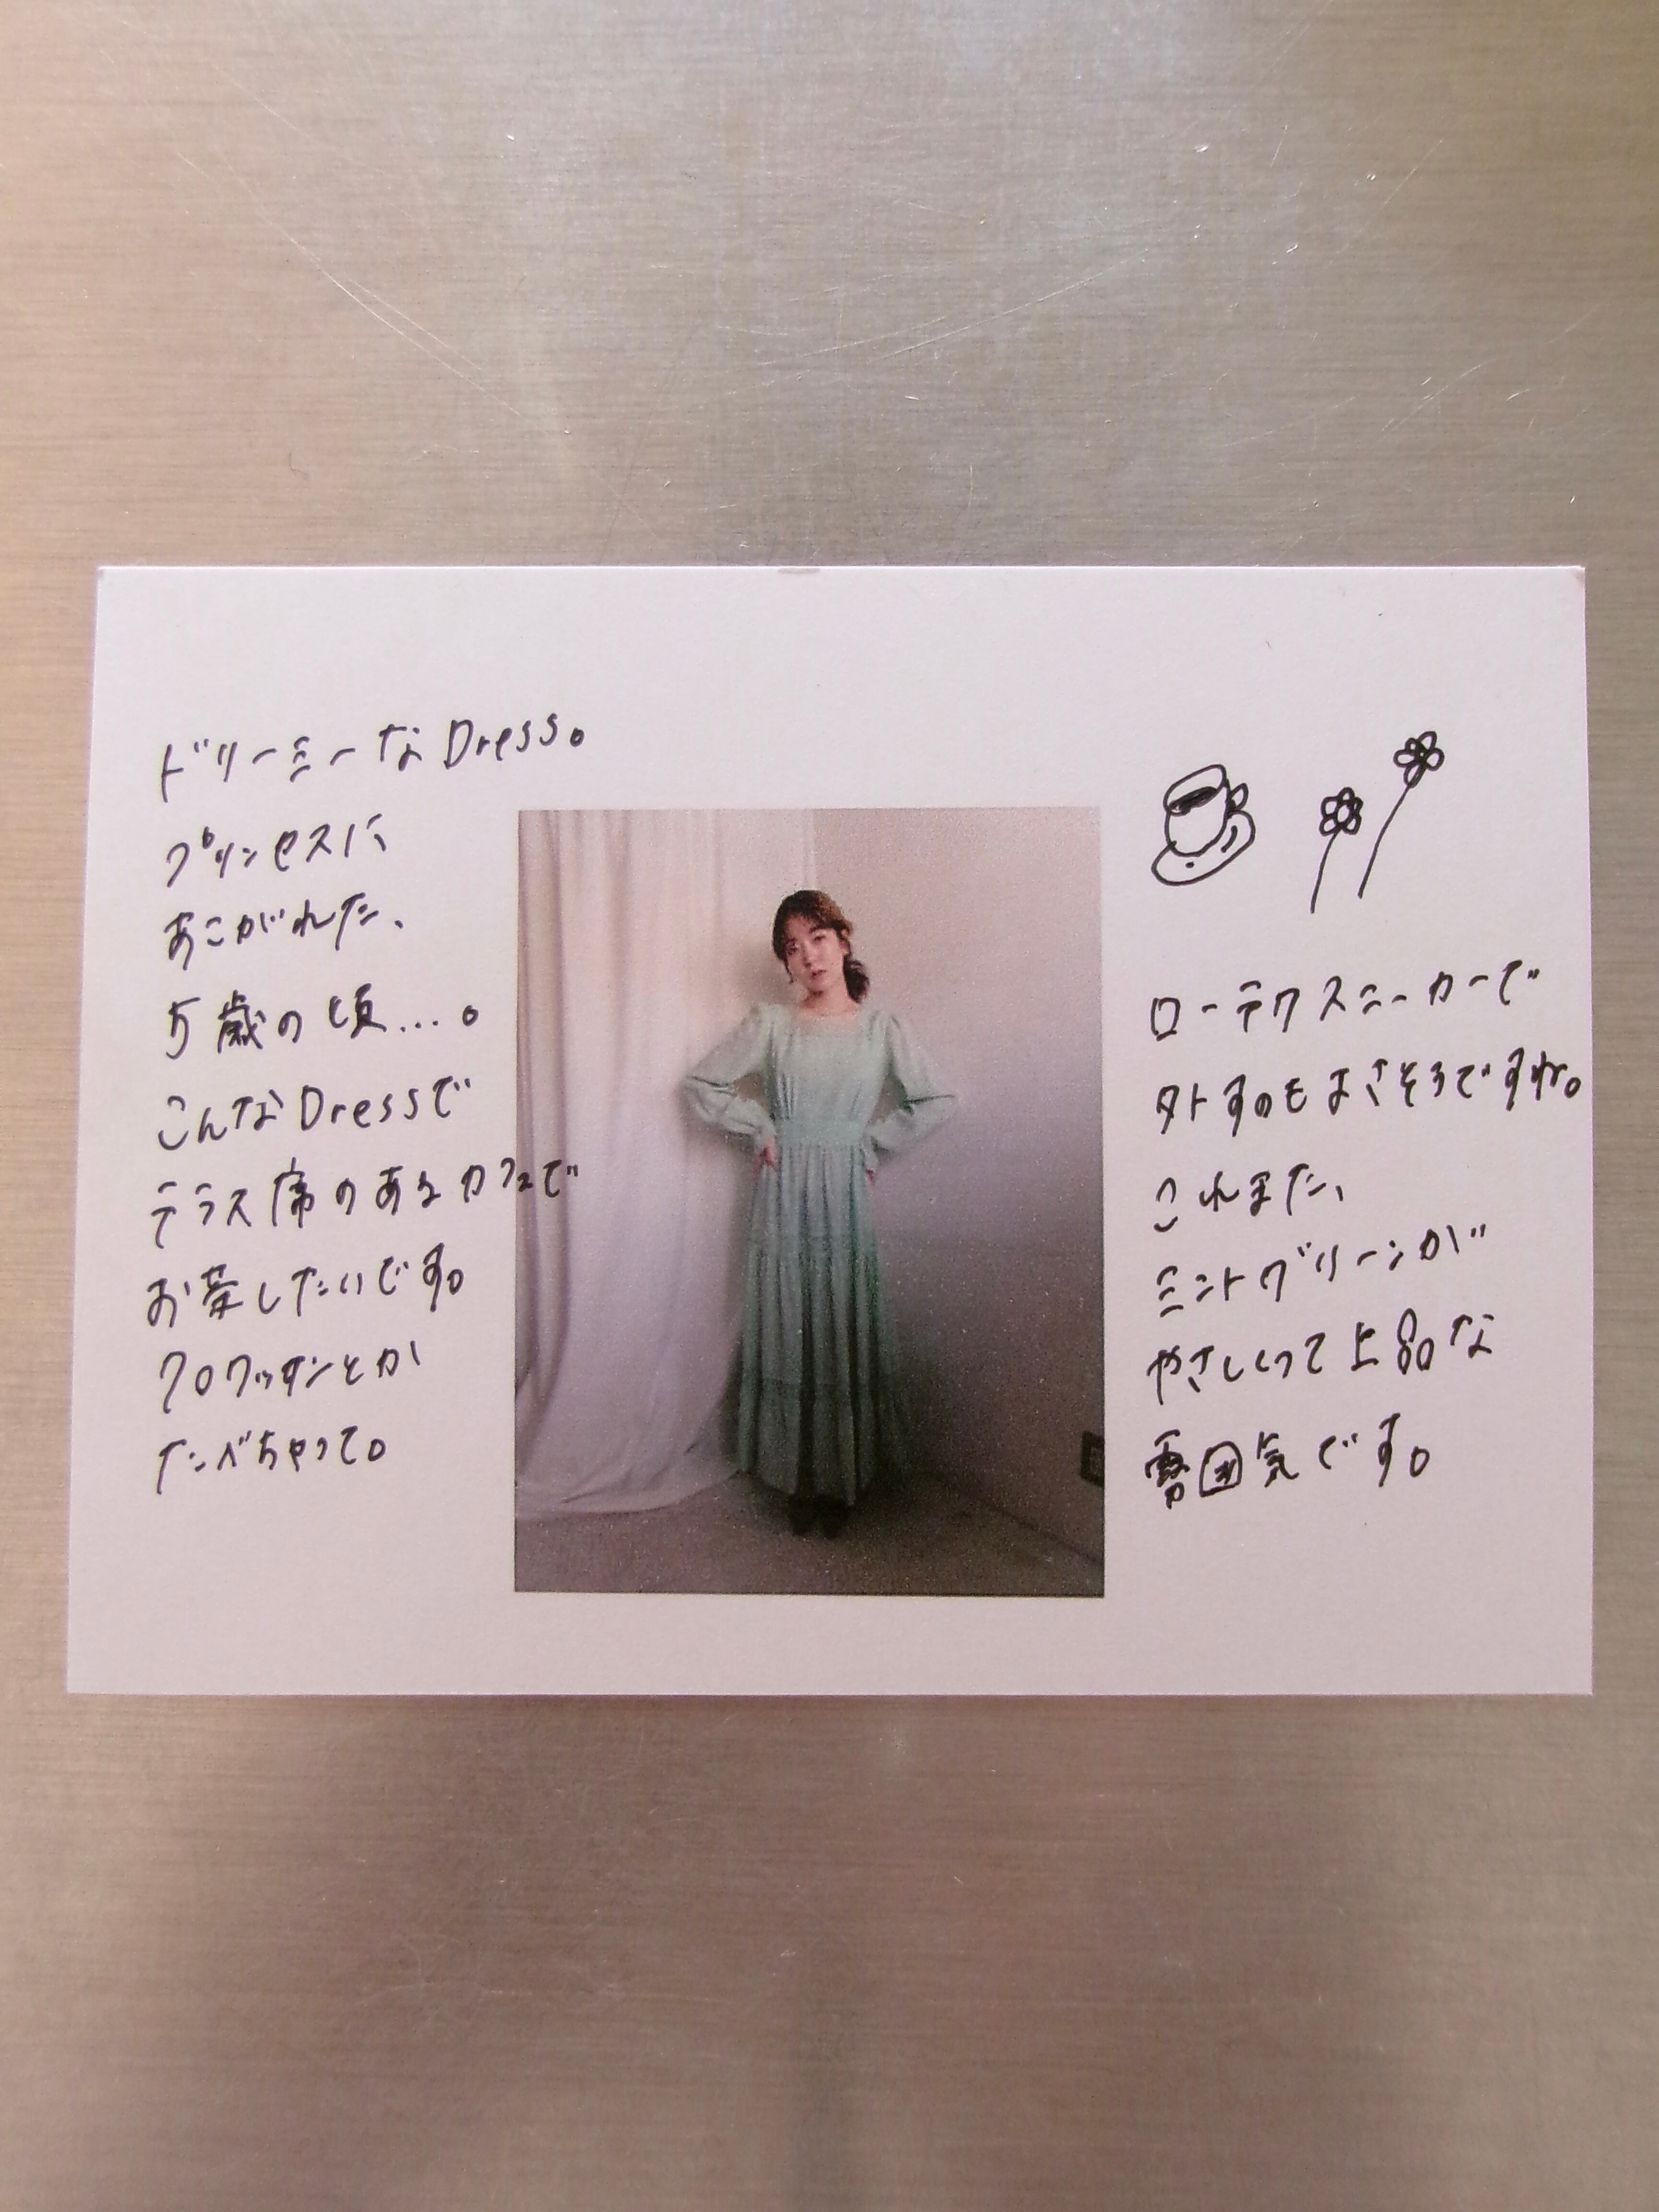 ドリーミーなDress。
プリンセスに
あこがれた、
5歳の頃...。
こんなDressで
テラス席のあるカフェで
お茶したいです。
クロワッサンとか
たべちゃって。
ローテクスニーカーで
外すのもよさそうですね。
これまた、
ミントグリーンが
やさしくって上品な
雰囲気です。